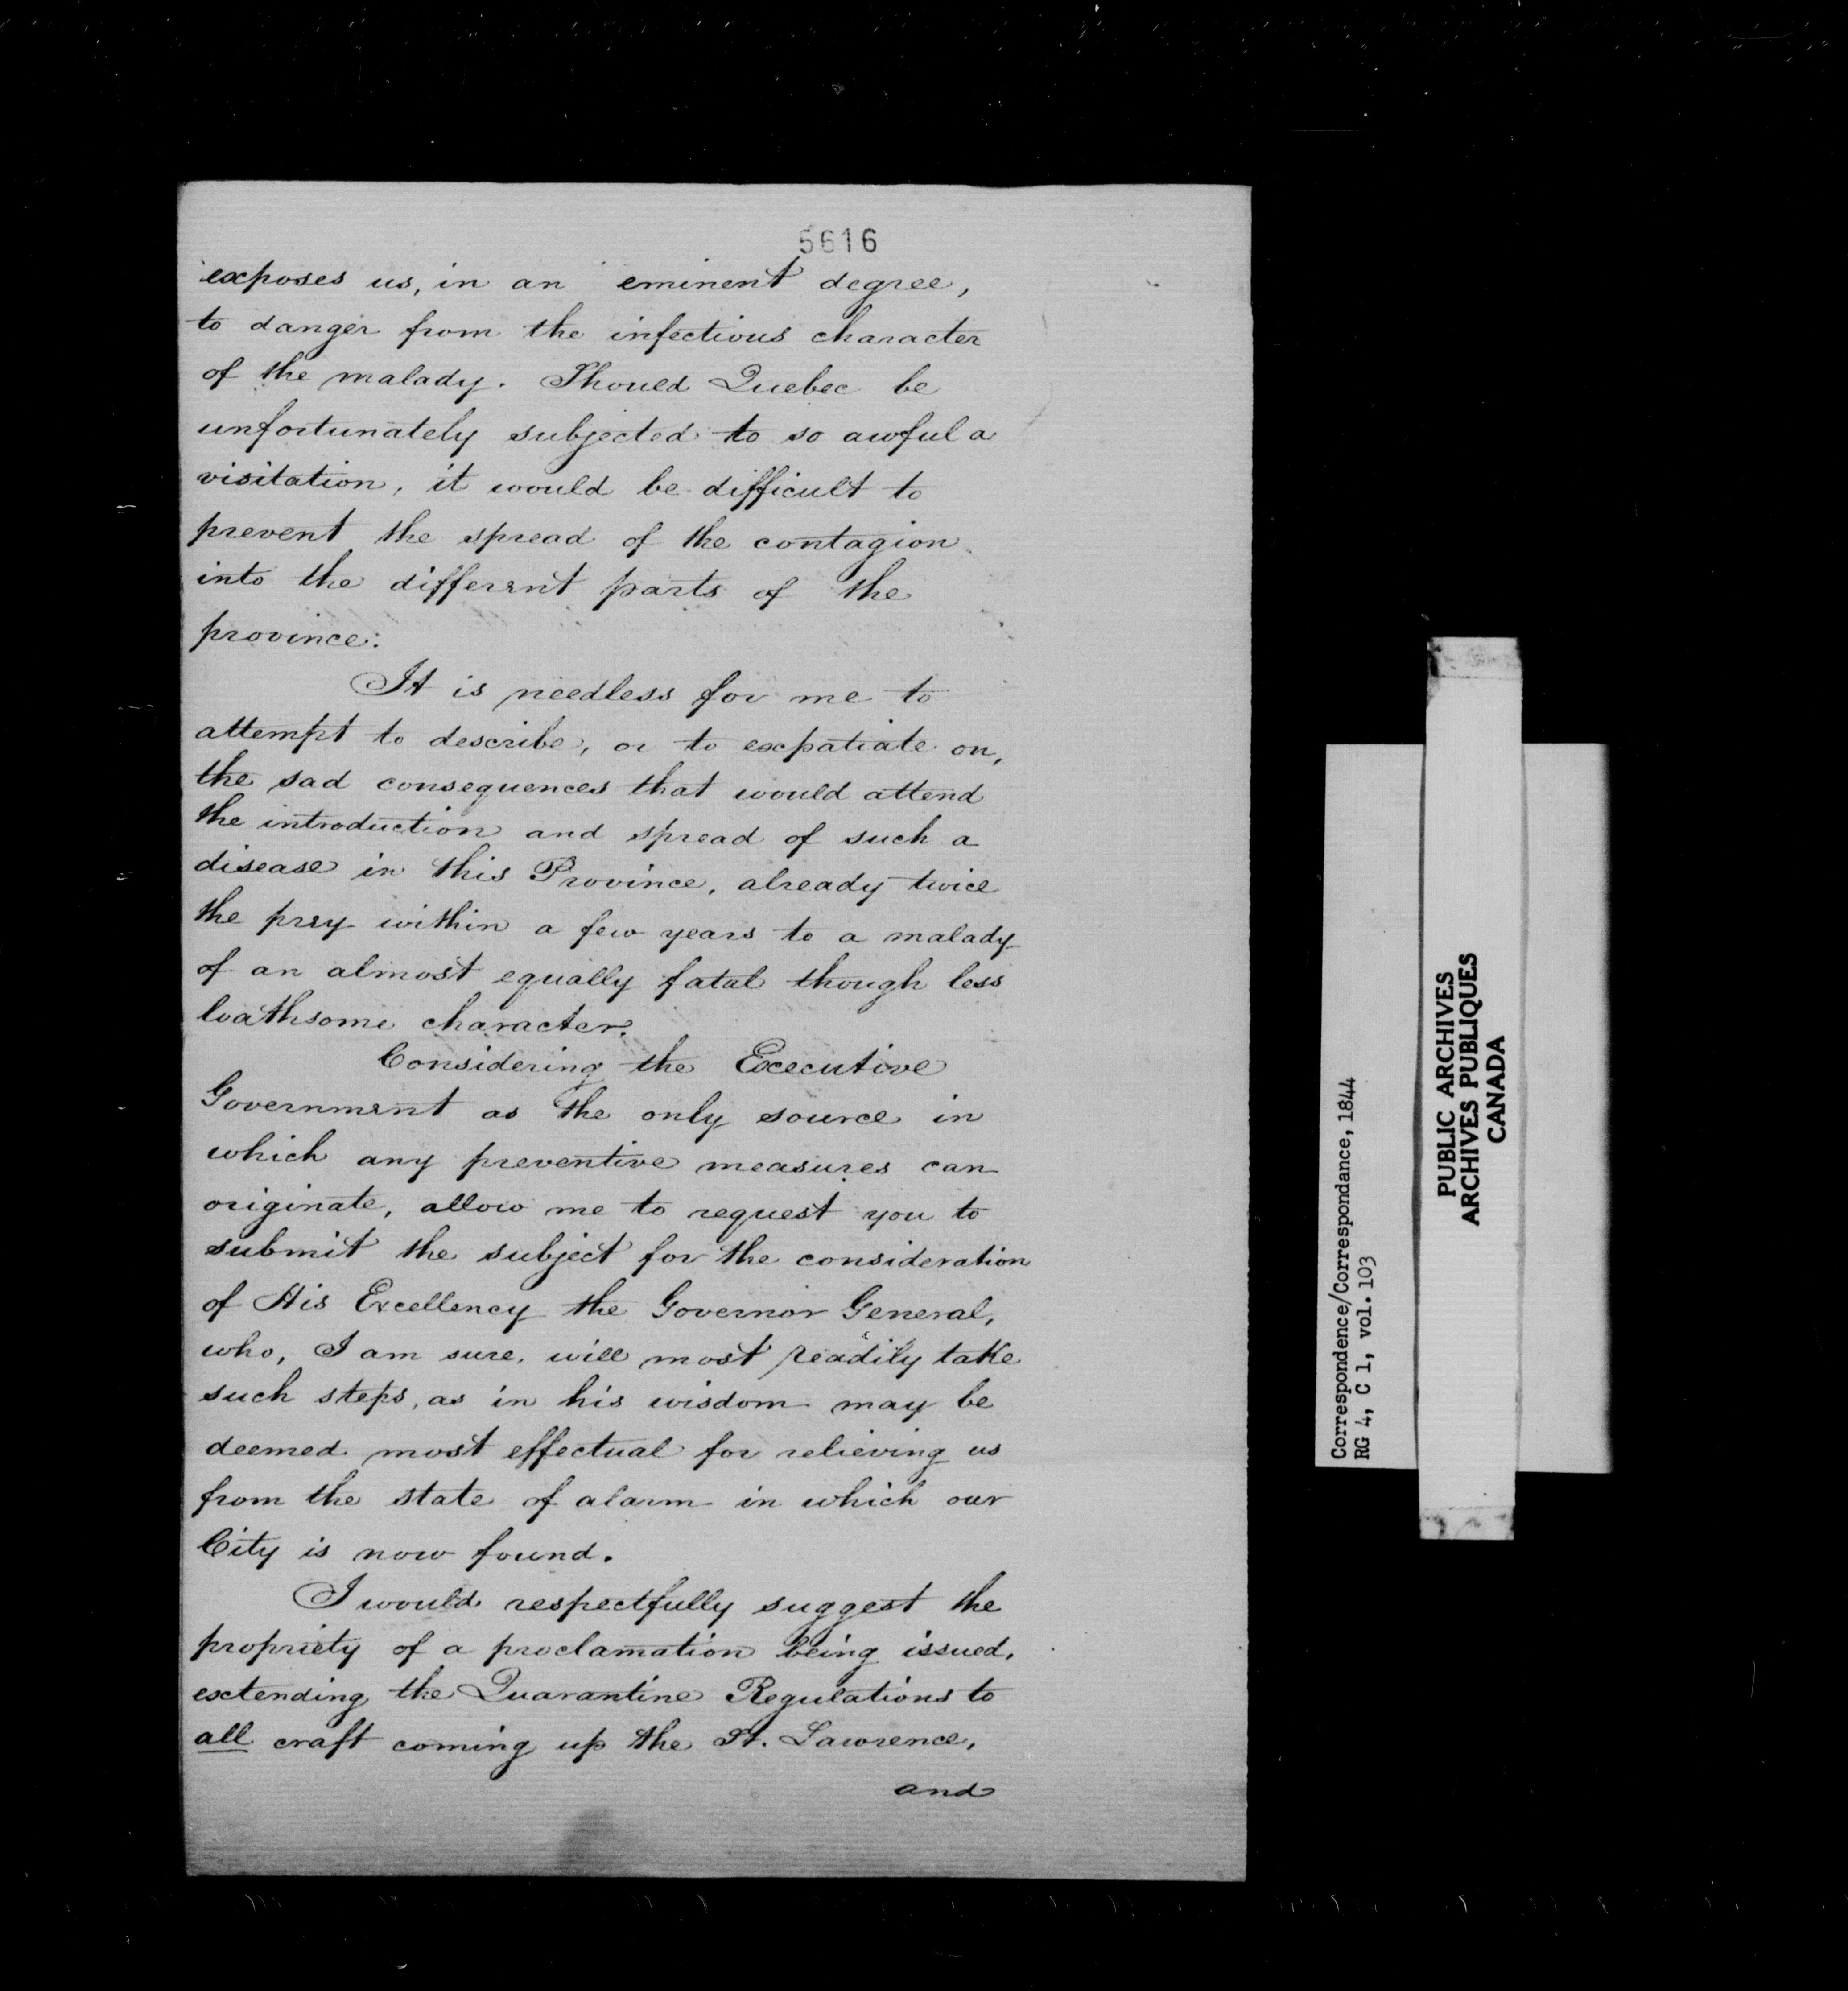 5616
exposes us, in an eminent degree,
to danger from the infectious character
of the malady. Should Quebec be
unfortunately subjected to so awful a
visitation, it would be difficult to
prevent the spread of the contagion
into the different parts of the
province.
It is needless for me to
attempt to describe, or to expatiate on,
the sad consequences that would attend
the introduction and spread of such a
disease in this Province, already twice
the prey within a few years to a malady
of an almost equally fatal though less
loathsome character.
Considering the Executive
Government as the only source in
which any preventive measures can
originate, allow me to request you to
submit the subject for the consideration
of His Excellency the Governor General,
who, I am sure, will most readily take
such steps, as in his wisdom may be
deemed most effectual for relieving us
from the state of alarm in which our
City is now found.
I would respectfully suggest the
propriety of a proclamation being issued,
extending the Quarantine Regulations to
all craft coming up the St. Lawrence,
and
Correspondence/Correspondance, 1844
RG 4, C 1, vol. 103
PUBLIC ARCHIVES
ARCHIVES PUBLIQUES
CANADA